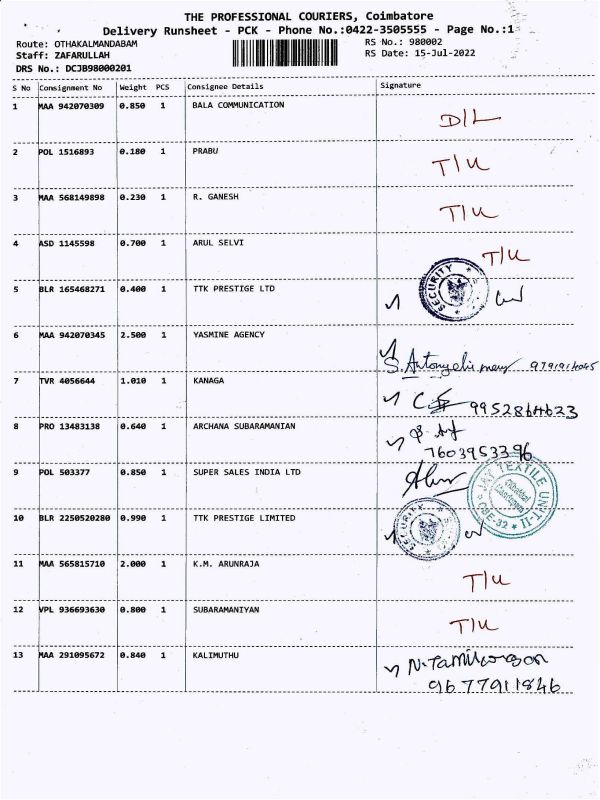 THE PROFESSIONAL COURIERS, Coimbatore
Delivery Runsheet - PCK - Phone No.:0422-3505555 - Page No.:1
Route: OTHAKALMANDABAM
RS No.: 980002
Staff: ZAFARULLAH
RS Date: 15-Jul-2022
DRS No.: DCJB98000201
S No Consignment No Weight PCS Consignee Details Signature
1 MAA 942070309 0.850 1 BALA COMMUNICATION D/L
2 POL 1516893 0.180 1 PRABU T/U
3 MAA 568149898 0.230 1 R. GANESH T/U
4 ASD 1145598 0.700 1 ARUL SELVI T/U
5 BLR 165468271 0.400 1 TTK PRESTIGE LTD SECURITY
6 MAA 942070345 2.500 1 YASMINE AGENCY S.
7 TVR 4056644 1.010 1 KANAGA 9952864623
8 PRO 13483138 0.640 1 ARCHANA SUBARAMANIAN 7603953396
9 POL 503377 0.850 1 SUPER SALES INDIA LTD JAY TEXTILE UNIT-II CBE-32
10 BLR 2250520280 0.990 1 TTK PRESTIGE LIMITED SECURITY
11 MAA 565815710 2.000 1 K.M. ARUNRAJA T/U
12 VPL 936693630 0.800 1 SUBARAMANIYAN T/U
13 MAA 291095672 0.840 1 KALIMUTHU N.Tamilarasan
9677911846